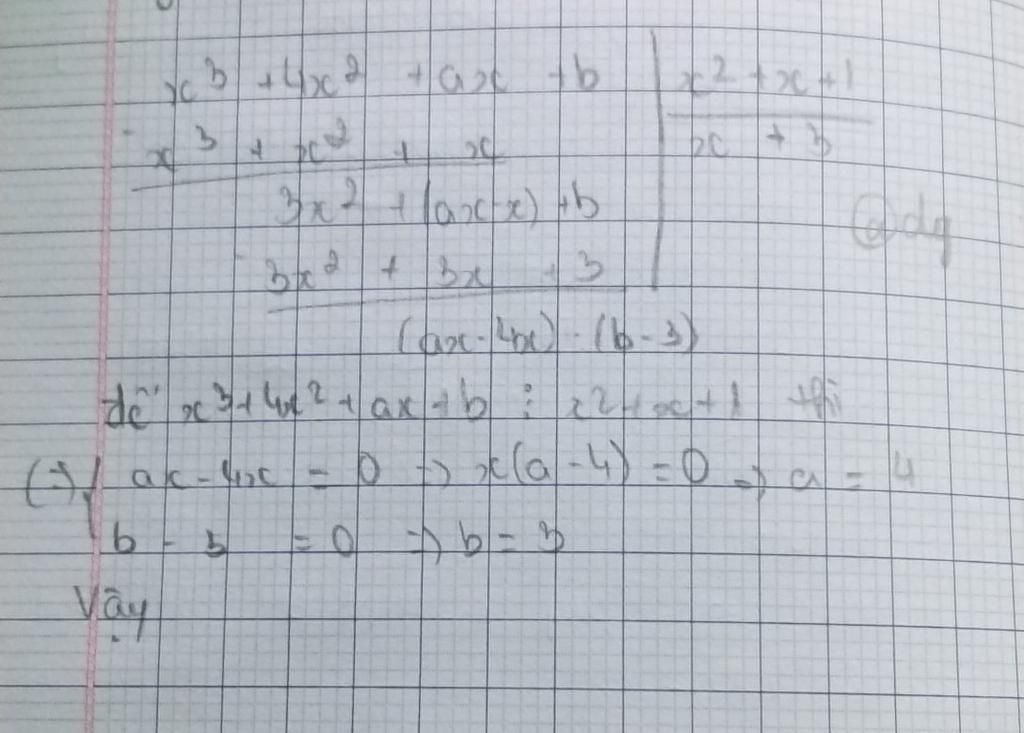 x³ + 4x² + ax + b | x² + x + 1
- x³ + x² + x | x + 3
3x² + (ax - x) + b
- 3x² + 3x + 3
(ax - 4x) - (b - 3)
để x³ + 4x² + ax + b ⋮ x² + x + 1 thì
ax - 4x = 0 => x(a - 4) = 0 => a = 4
b - 3 = 0 => b = 3
Vậy